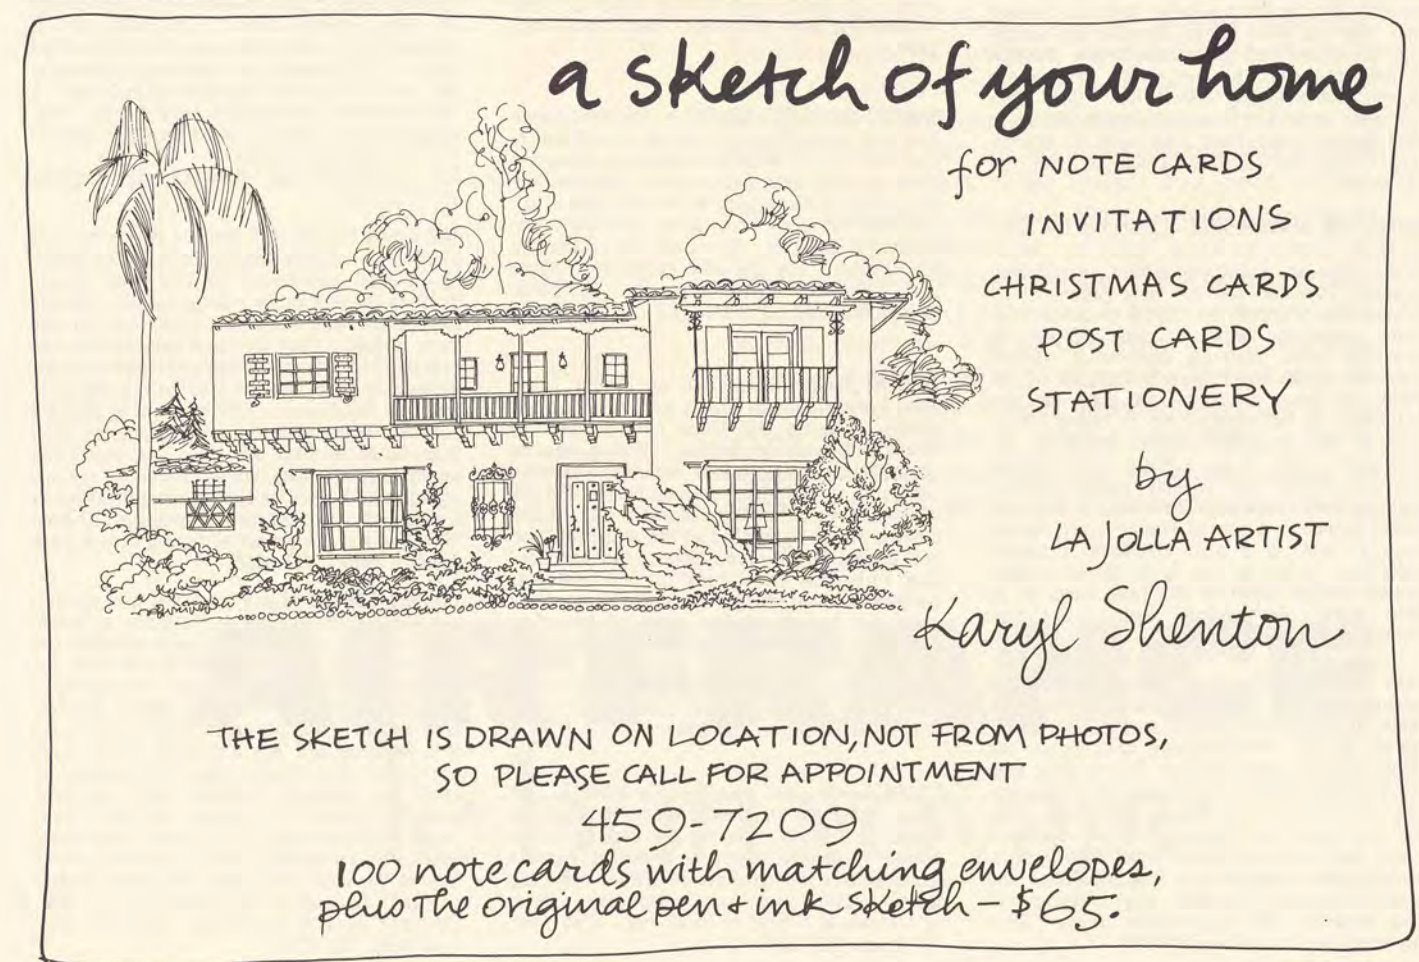 a sketch of your home
for NOTE CARDS
INVITATIONS
CHRISTMAS CARDS
POST CARDS
STATIONERY
by
LA JOLLA ARTIST
Karyl Shenton
THE SKETCH IS DRAWN ON LOCATION, NOT FROM PHOTOS,
SO PLEASE CALL FOR APPOINTMENT
459-7209
100 note cards with matching envelopes,
plus The original pen + ink sketch - $65.